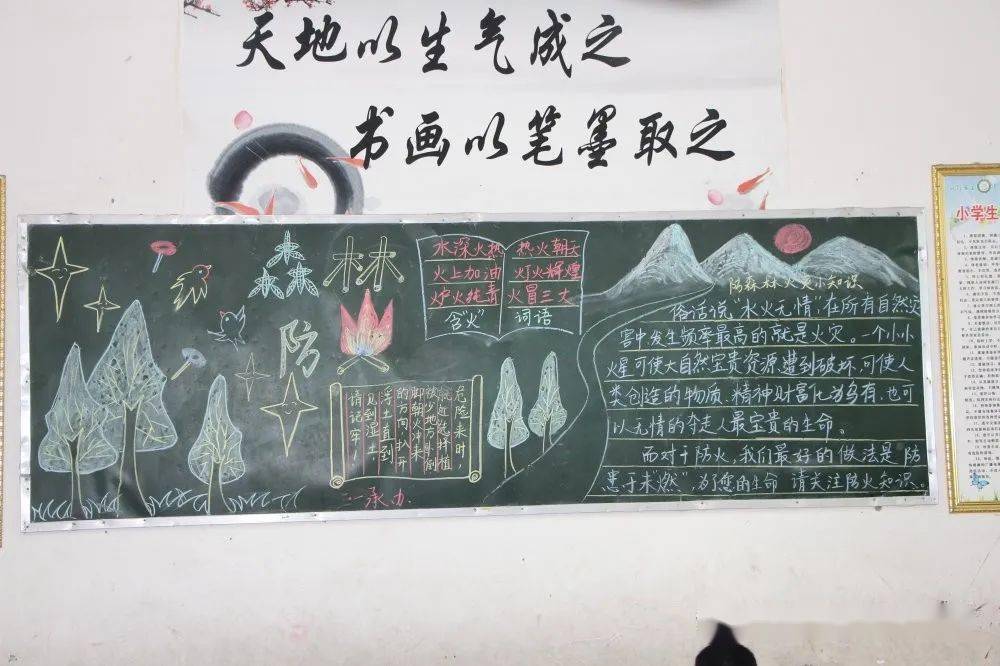 天地以生气成之
书画以笔墨取之
森林
防
水深火热 热火朝天
火上加油 灯火辉煌
炉火纯青 火冒三丈
含"火" 词语
危险来时，
就近选择植
被少地方卧倒
脚朝火冲来
的方向，扒开
浮土直到
见到湿土
情记牢！
二一承办
防森林火灾小知识
俗话说"水火无情",在所有自然灾
害中发生频率最高的就是火灾。一个小小
火星可使大自然宝贵资源遭到破坏,可使人
类创造的物质、精神财富化为乌有,也可
以无情的夺走人最宝贵的生命。
而对于防火,我们最好的做法是"防
患于未燃",为了您的生命 请关注防火知识。
小学生